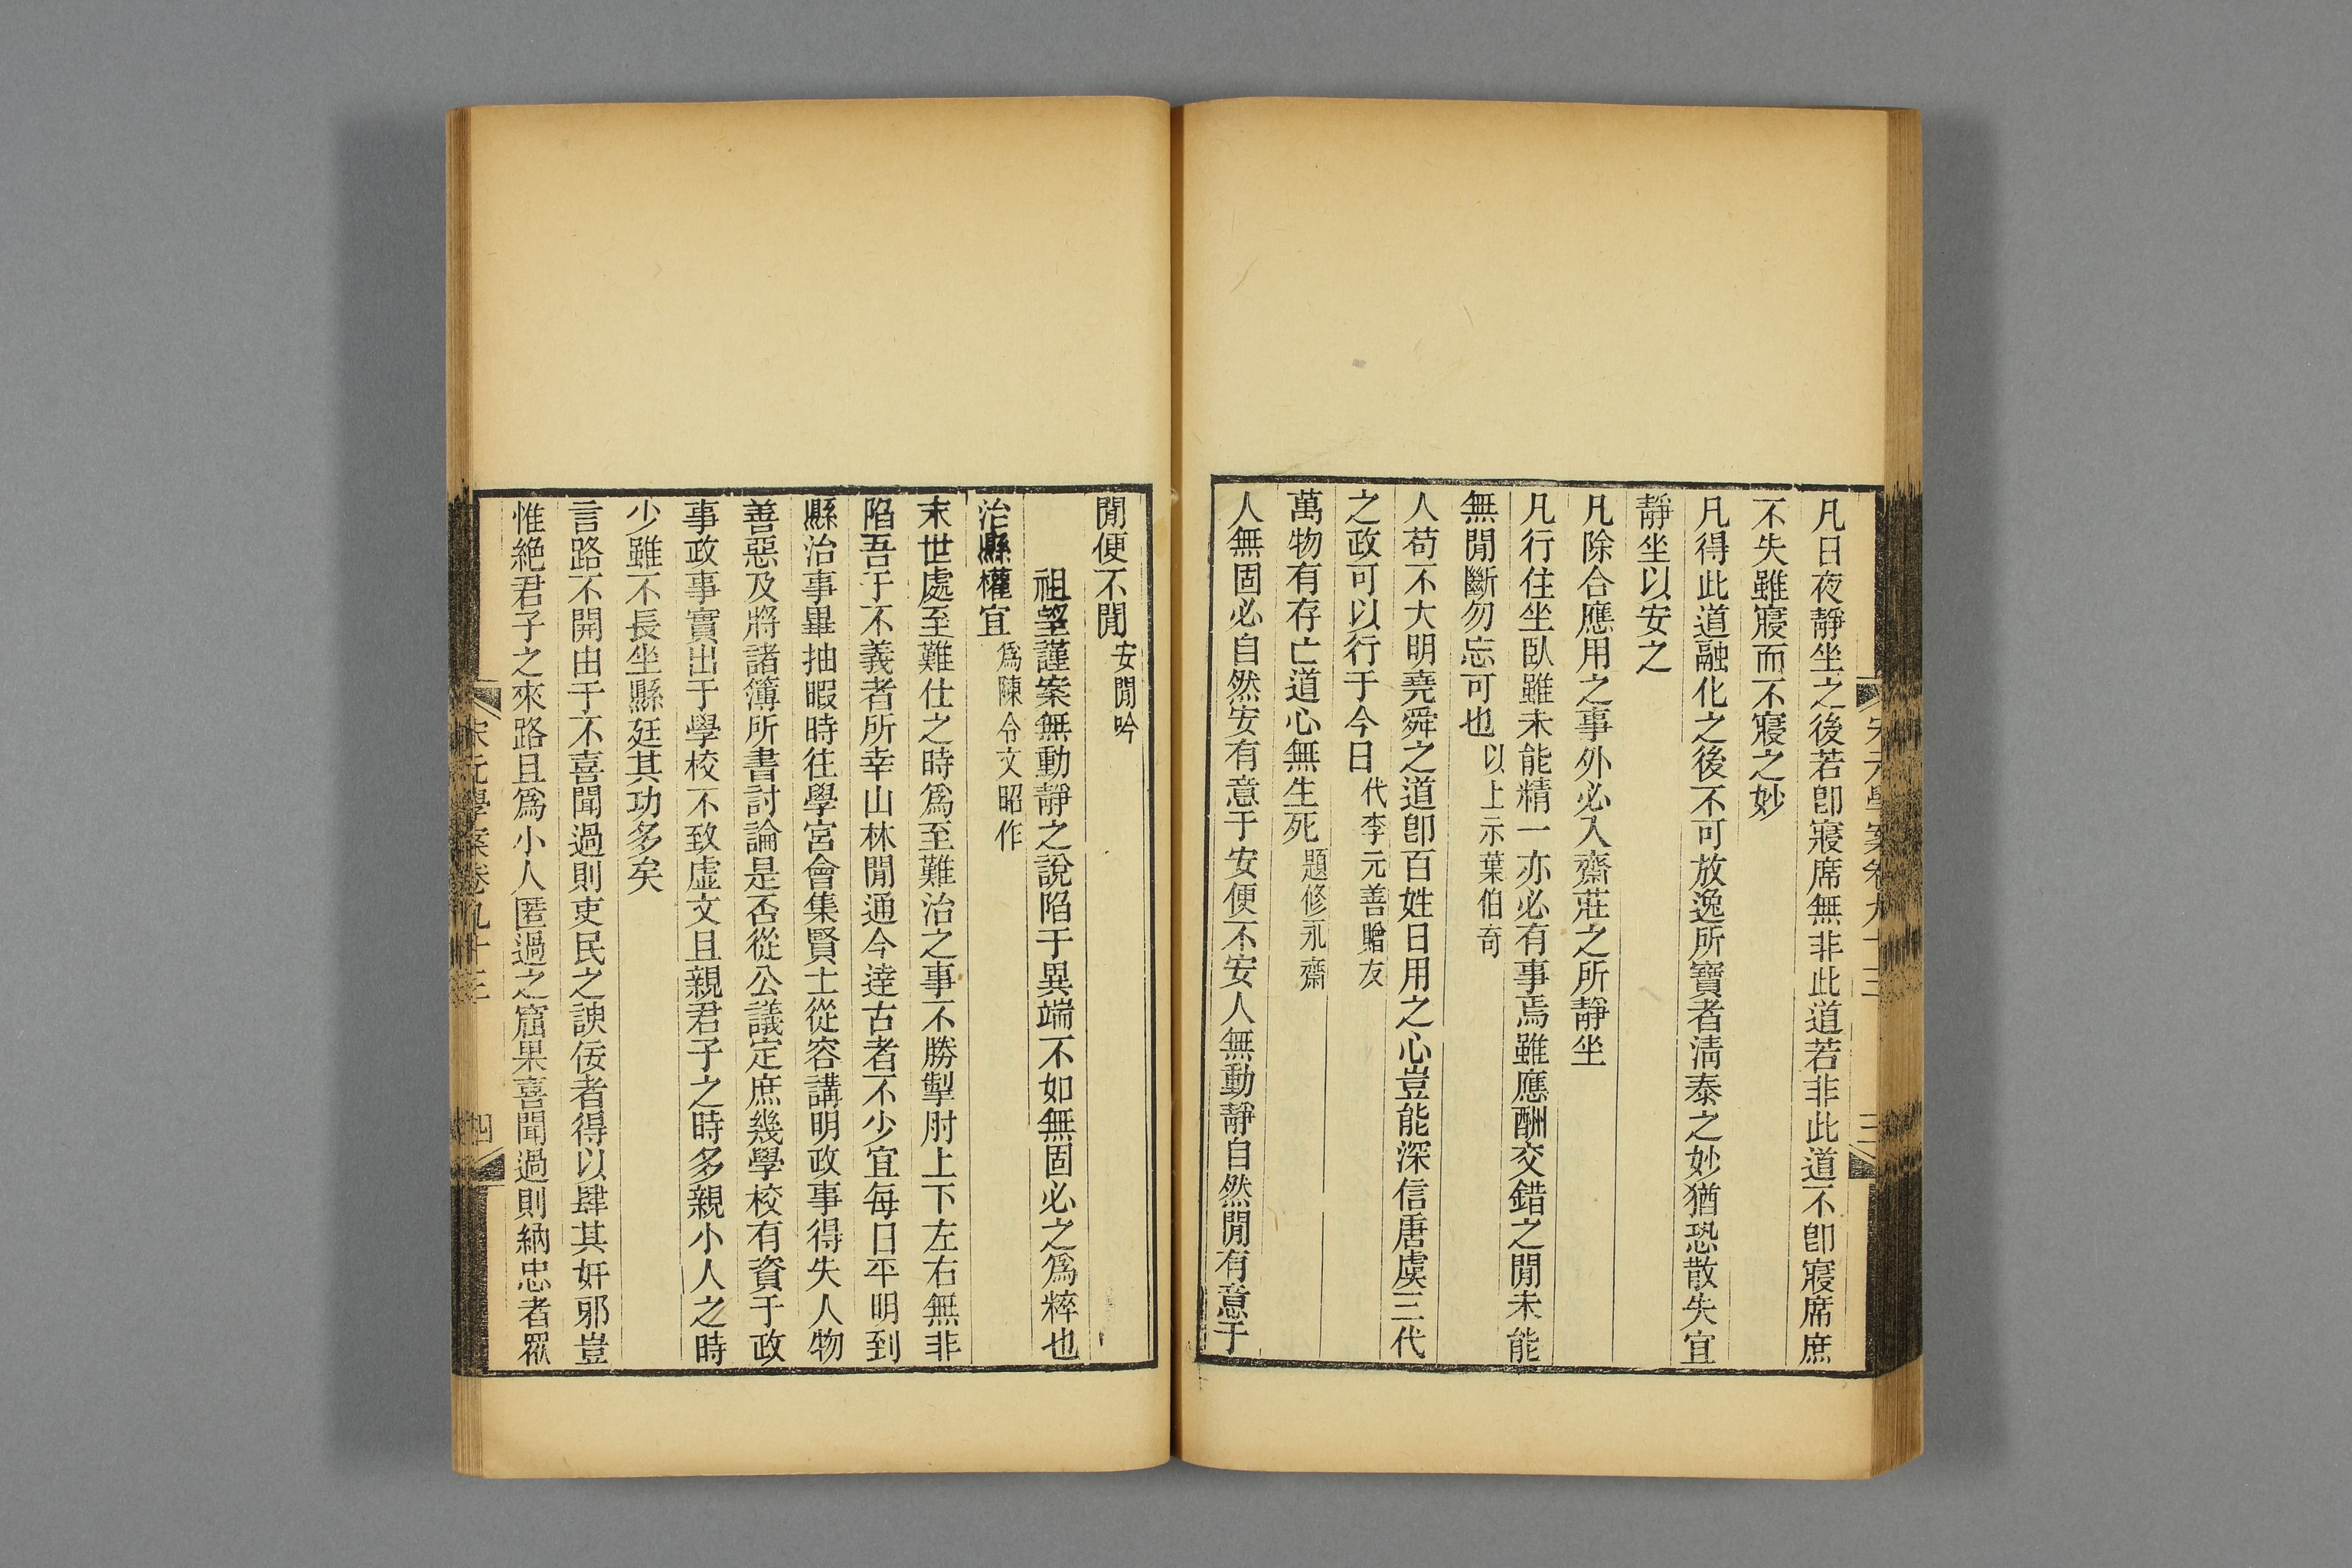 凡日夜靜坐之後若卽寢席無非此道若非此道不卽寢席庶
不失雖寢而不寢之妙
凡得此道融化之後不可放逸所寶者淸泰之妙猶恐散失宜
靜坐以安之
凡除合應用之事外必入齋莊之所靜坐
凡行住坐臥雖未能精一亦必有事焉雖應酬交錯之閒未能
無閒斷勿忘可也以上示葉伯奇
人苟不大明堯舜之道卽百姓日用之心豈能深信唐虞三代
之政可以行于今日代李元善贈友
萬物有存亡道心無生死題修永齋
人無固必自然安有意于安便不安人無動靜自然閒有意于
閒便不閒安閒吟
祖望謹案無動靜之說陷于異端不如無固必之爲粹也
治縣權宜爲陳令文昭作
末世處至難仕之時爲至難治之事不勝掣肘上下左右無非
陷吾于不義者所幸山林閒通今達古者不少宜每日平明到
縣治事畢抽暇時往學宮會集賢士從容講明政事得失人物
善惡及將諸簿所書討論是否從公議定庶幾學校有資于政
事政事實出于學校不致虛文且親君子之時多親小人之時
少雖不長坐縣廷其功多矣
言路不開由于不喜聞過則吏民之諛佞者得以肆其奸邪豈
惟絕君子之來路且爲小人匿過之窟果喜聞過則納忠者眾
宋元學案卷九十三
四